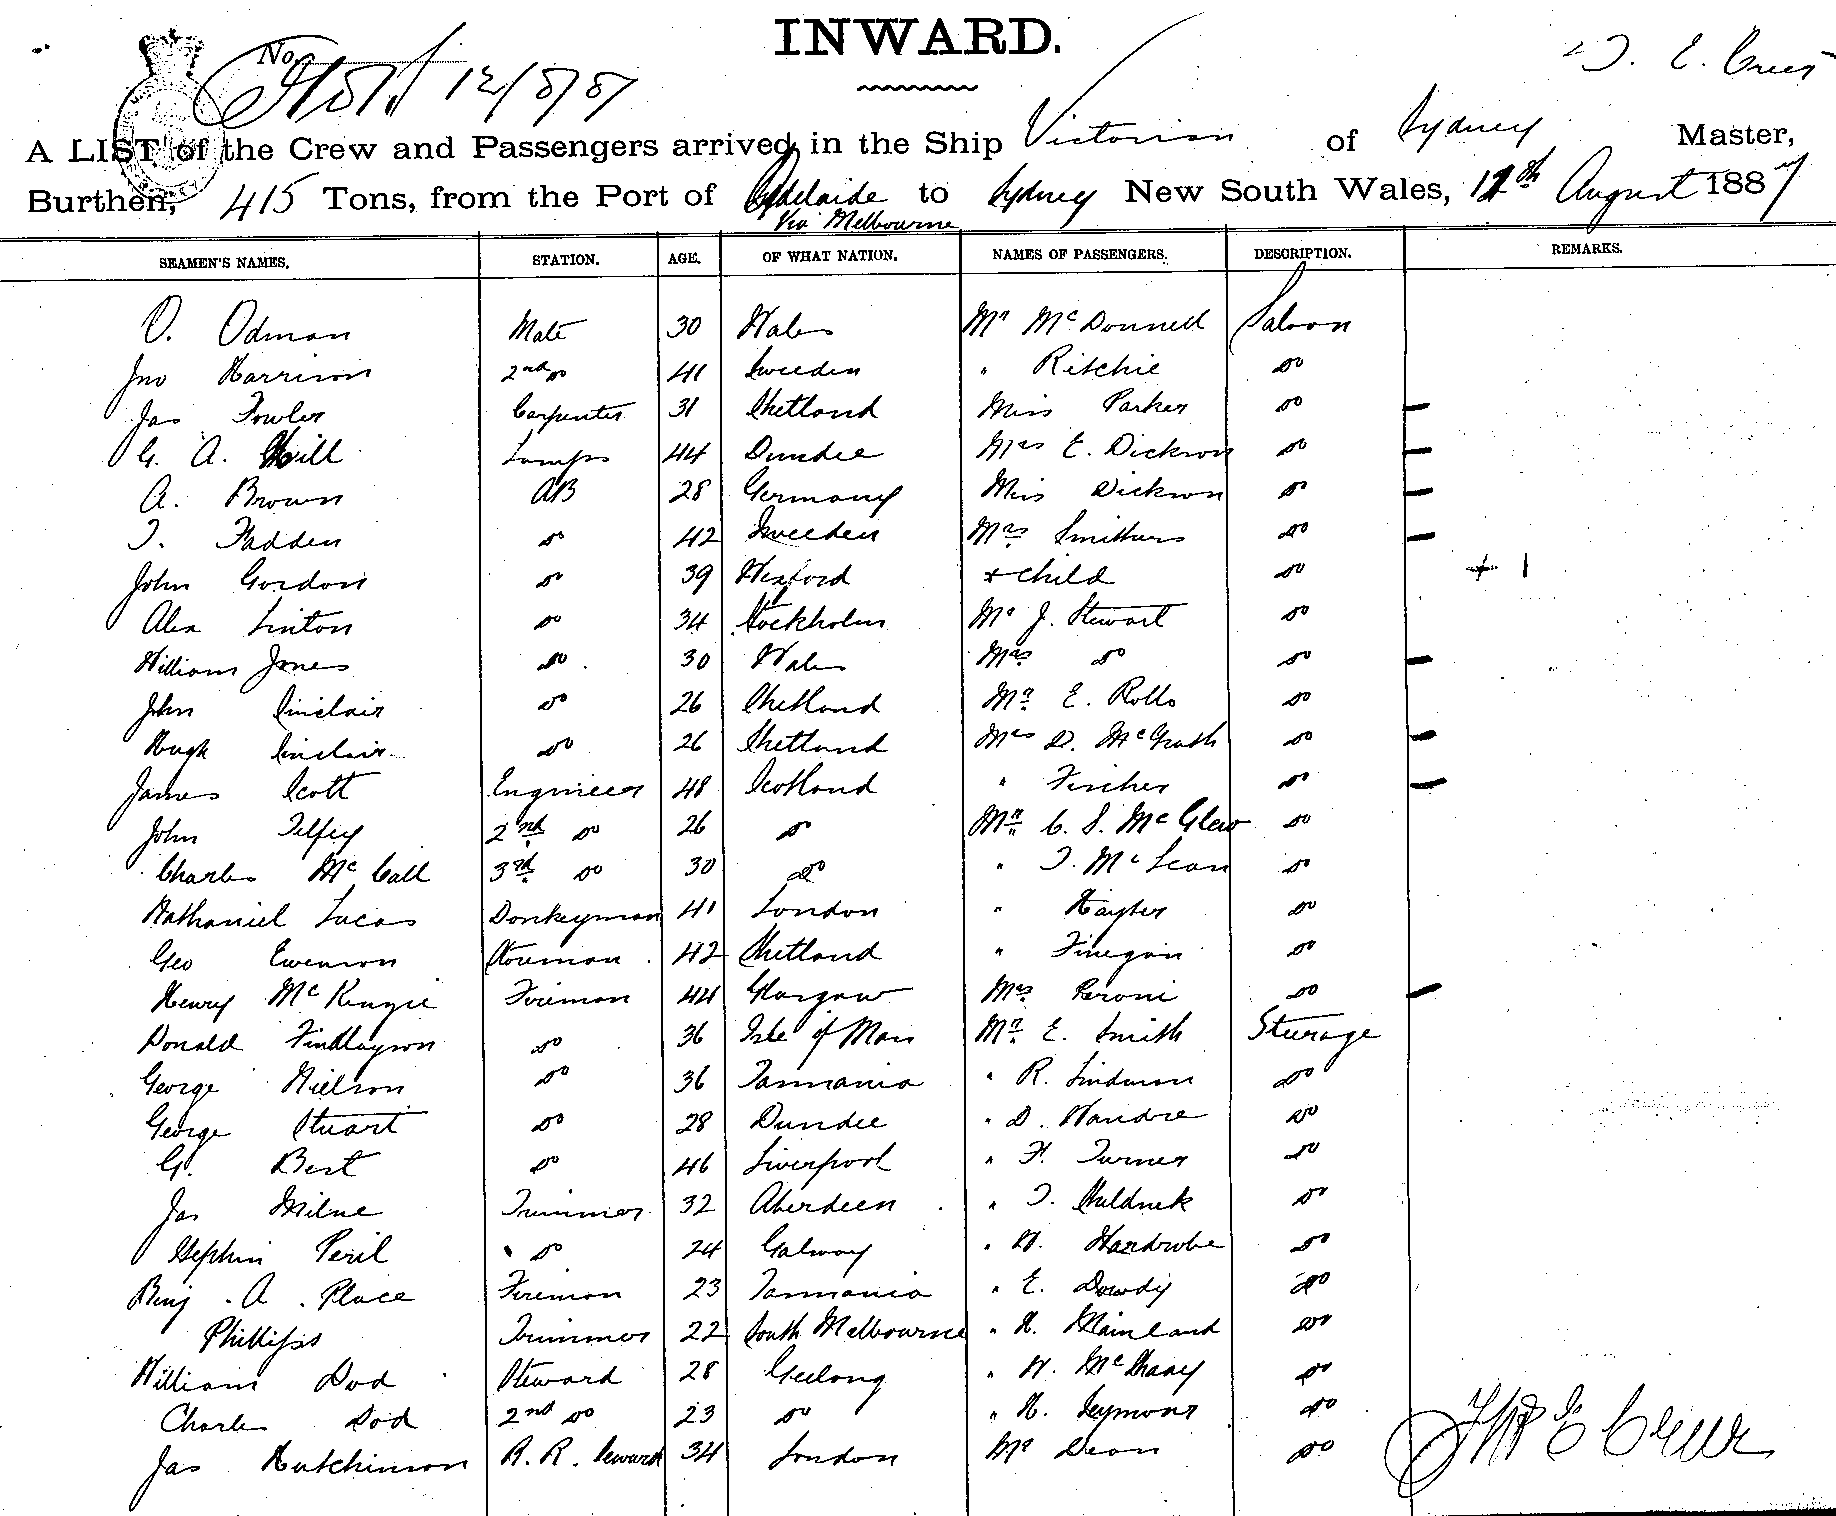 INWARD.
No.
12/8/87
T. E. Creer
A LIST of the Crew and Passengers arrived in the Ship Victorian of Sydney Master,
Burthen, 415 Tons, from the Port of Adelaide to Sydney New South Wales, 12th August 1887
Via Melbourne
SEAMEN'S NAMES. STATION. AGE. OF WHAT NATION. NAMES OF PASSENGERS. DESCRIPTION. REMARKS.
O. Odman Mate 30 Wales Mr McDonnell Saloon
Jno Harrison 2nd do 41 Sweeden " Ritchie do
Jas Fowler Carpenter 31 Shetland Miss Parker do
G. A. Hill Lamps 44 Dundee Mrs E. Dickson do
A. Brown AB 28 Germany Miss Dickson do
T. Fadden do 42 Sweeden Mrs Smithers do
John Gordon do 39 Wexford + Child do + 1
Alex Linton do 34 Stockholm Mr J. Stewart do
William Jones do 30 Wales Mrs do do
John Sinclair do 26 Shetland Mr E. Rolls do
Hugh Sinclair do 26 Shetland Mrs D. McGrath do
James Scott Engineer 48 Scotland " Fischer do
John Telfey 2nd do 26 do Mr C. S. McGlew do
Charles McCall 3rd do 30 do " T. McLean do
Nathaniel Lucas Donkeyman 41 London " Hayter do
Geo Ewenson Storeman 42 Shetland " Finegan do
Henry McKenzie Fireman 44 Glasgow Mrs Peroni do
Donald Findlayson do 36 Isle of Man Mr E. Smith Steerage
George Nielson do 36 Tasmania " R. Lindman do
George Stuart do 28 Dundee " D. do
G. Best do 46 Liverpool " F. Turner do
Jas Milne Trimmer 32 Aberdeen " T. do
Stephen Peril do 24 Galway " H. Wardrobe do
Benj. A. Place Fireman 23 Tasmania " E. Dowdy do
Phillips Trimmer 22 South Melbourne " H. Mainland do
William Dod Steward 28 Geelong " W. do
Charles Dod 2nd do 23 do " H. Seymour do
Jas Hutchinson R. R. Steward 34 London Mr Dean do
Thos E Creer